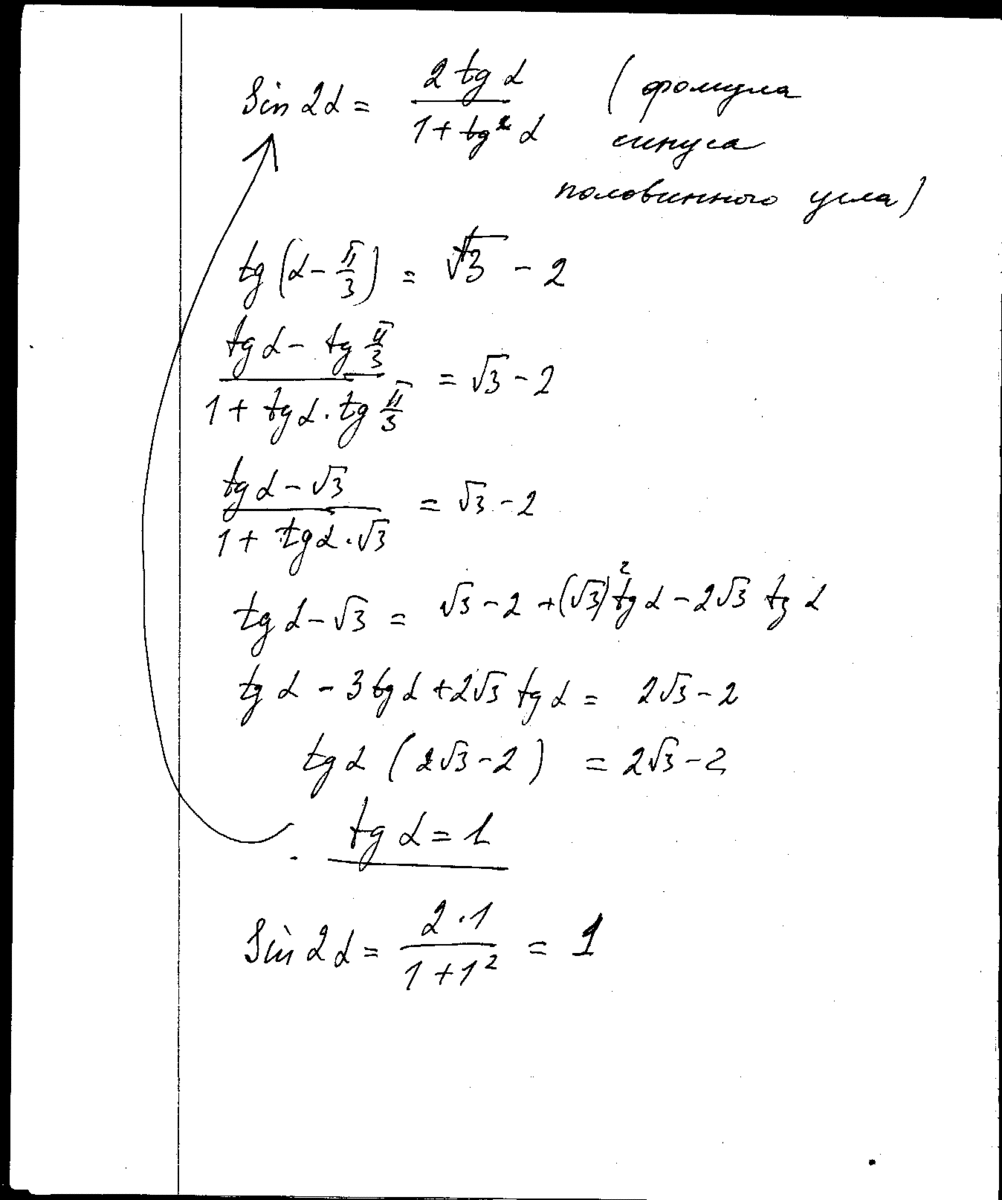 sin 2α = 2 tg α / 1 + tg² α (формула
синуса
половинного угла)
tg (α - π/3) = √3 - 2
tg α - tg π/3 / 1 + tg α · tg π/3 = √3 - 2
tg α - √3 / 1 + tg α · √3 = √3 - 2
tg α - √3 = √3 - 2 + (√3)² tg α - 2√3 tg α
tg α - 3 tg α + 2√3 tg α = 2√3 - 2
tg α (2√3 - 2) = 2√3 - 2
tg α = 1
sin 2α = 2 · 1 / 1 + 1² = 1